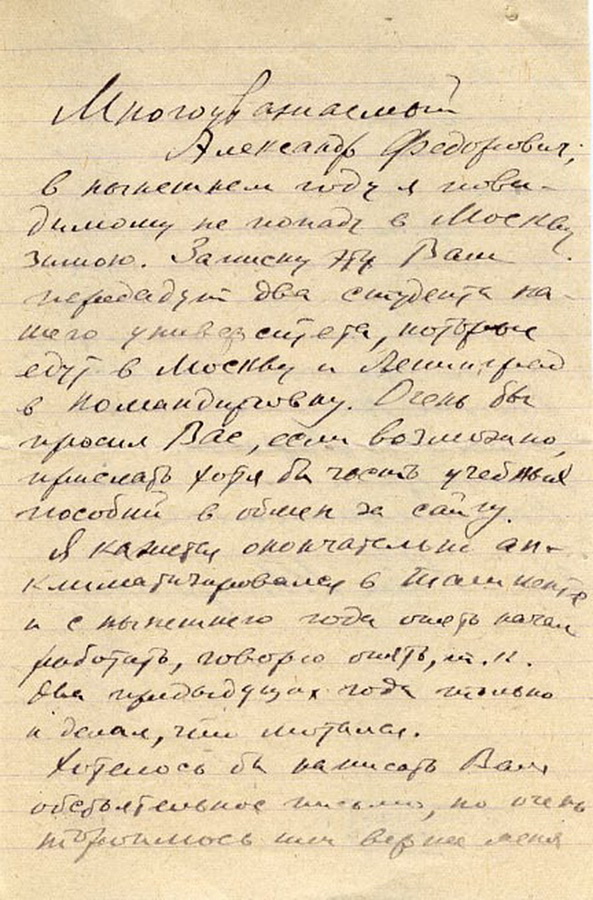 Многоуважаемый
Александр Федорович,
в нынешнем году я пови-
димому не попаду в Москву
зимою. Записку эту Вам
передадут два студента на-
шего университета, которые
едут в Москву и Ленинград
в командировку. Очень бы
просил Вас, если возможно,
прислать хотя бы часть учебных
пособий в обмен за сайгу.
Я кажется окончательно ак-
климатизировался в Ташкенте
и с нынешнего года опять начал
работать, говорю опять, т.к.
два предыдущих года только
и делал, что мотался.
Хотелось бы написать Вам
обстоятельное письмо, но очень
тороплюсь или вернее меня